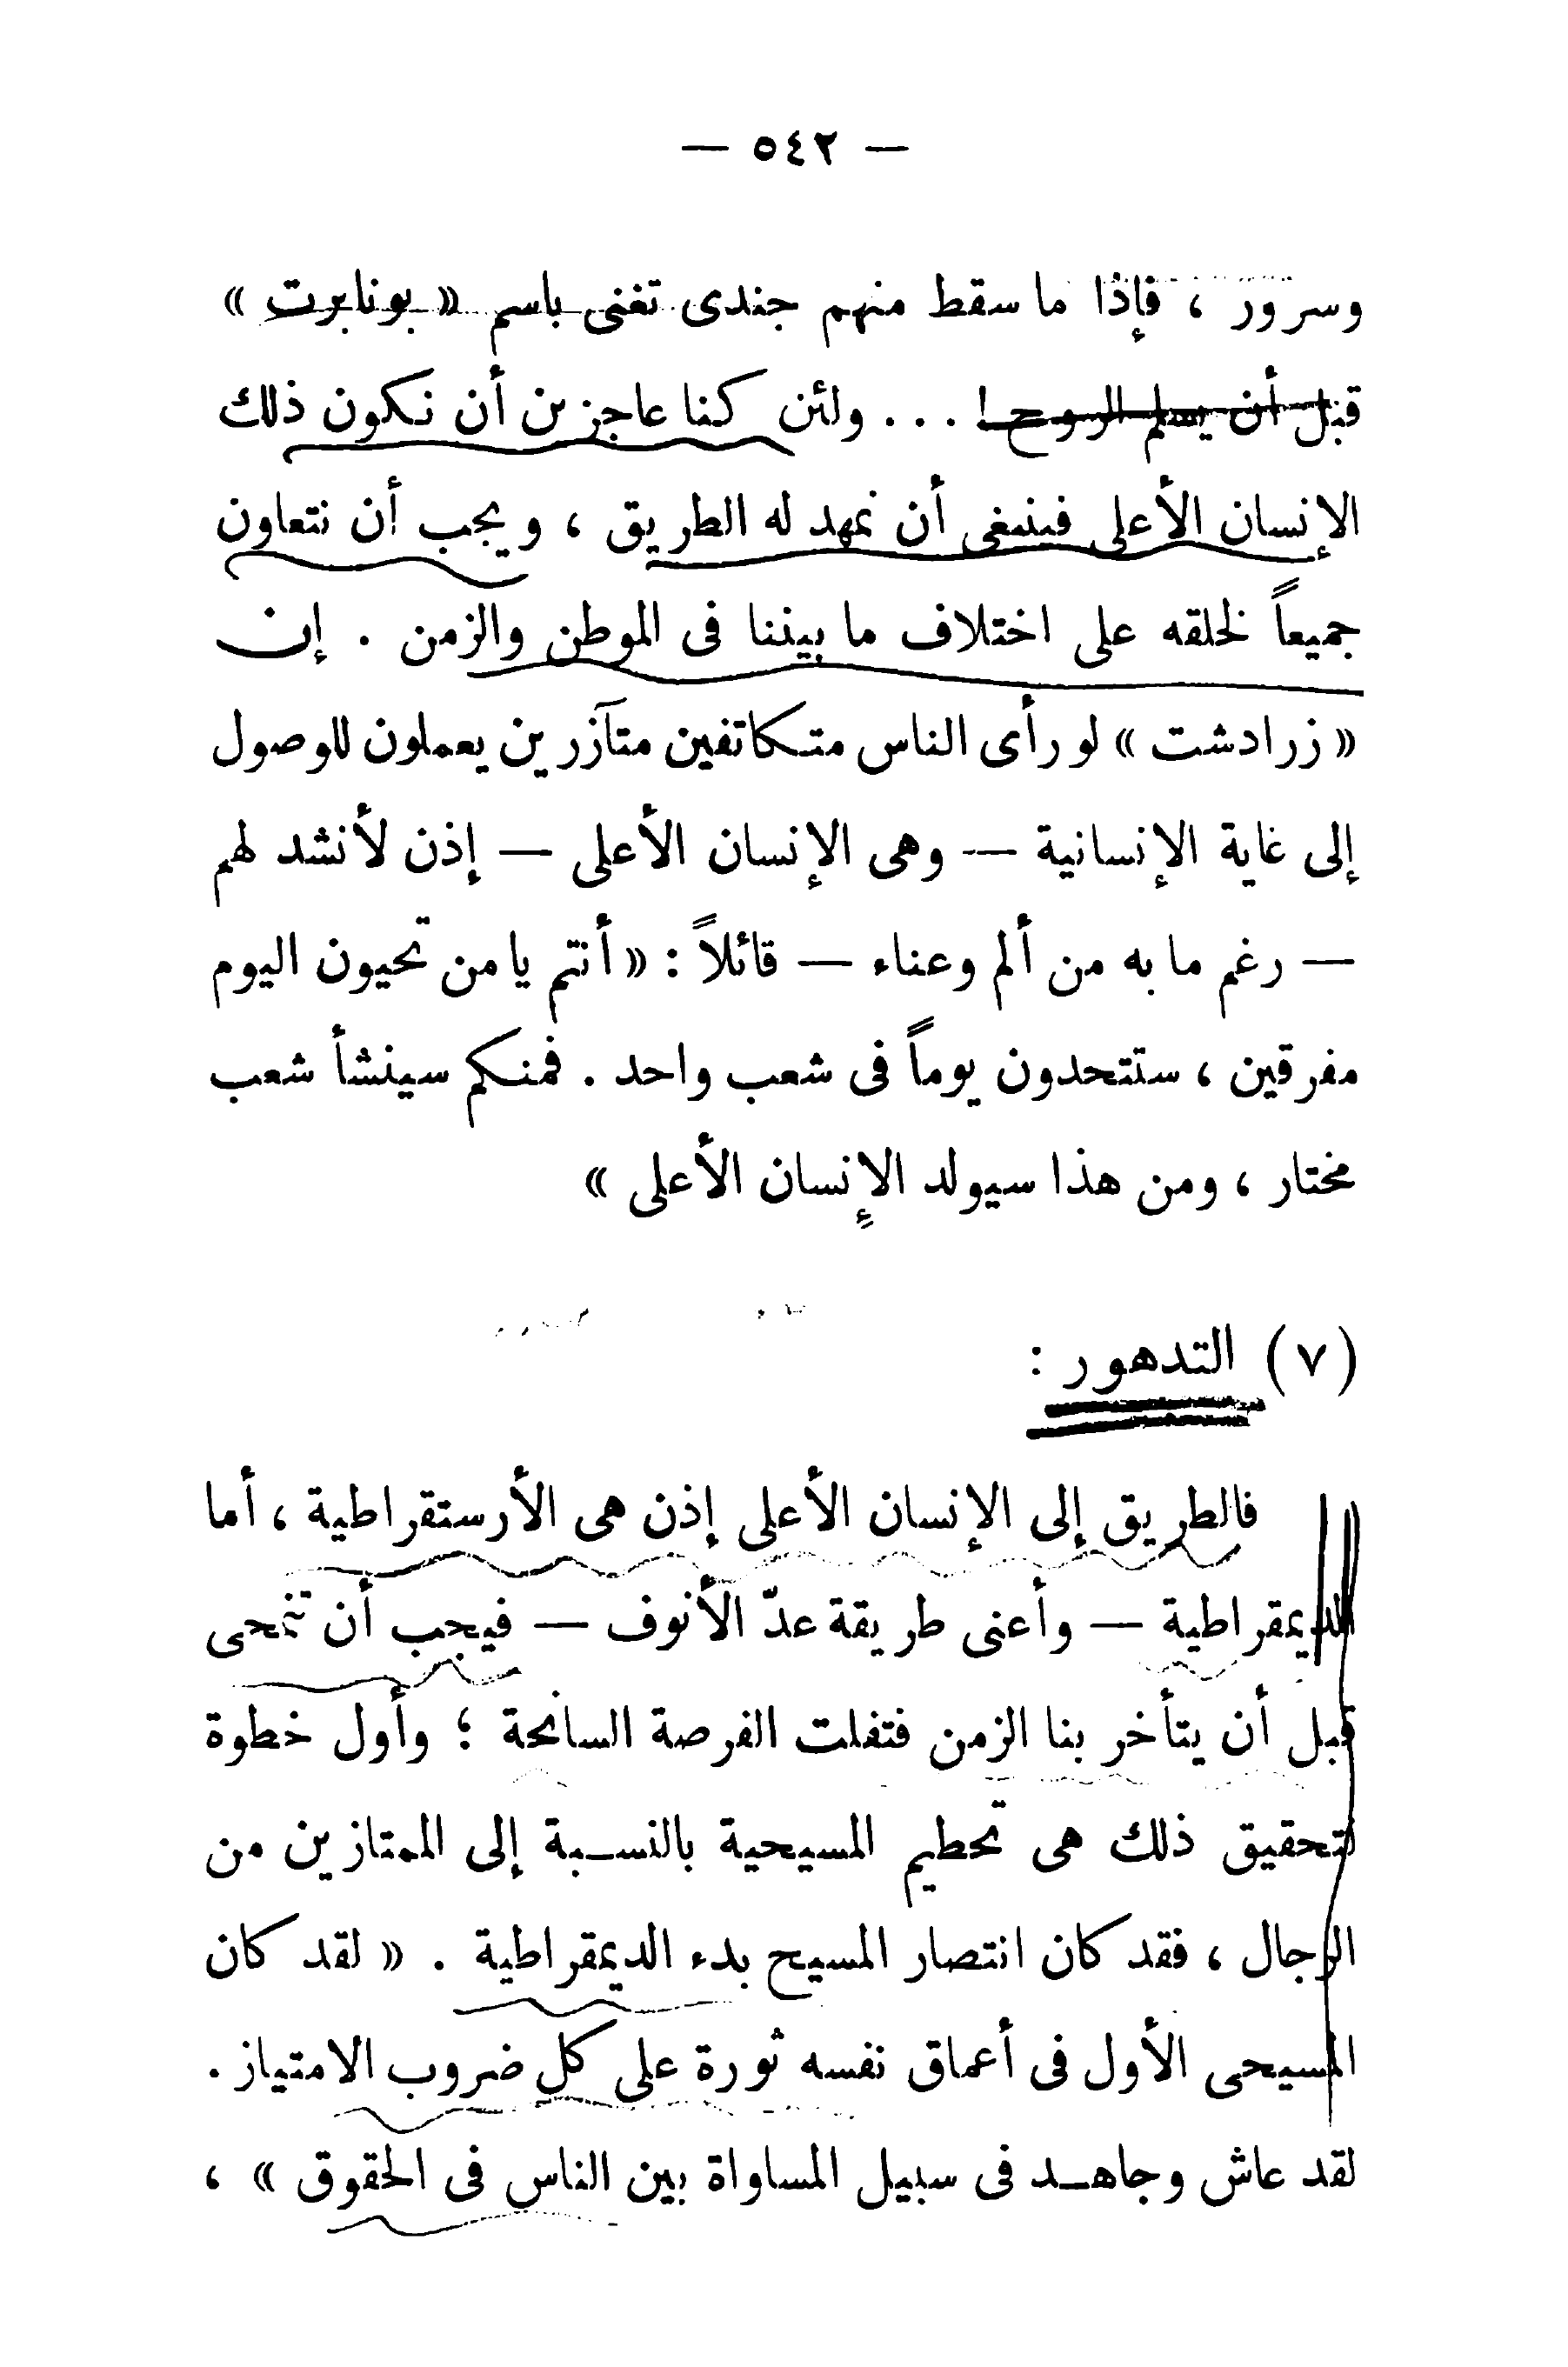 — ٥٤٢ —
وسرور ، فإذا ما سقط منهم جندى تغنى باسم « بونابرت »
قبل أن يسلم الروح ! . . . ولئن كنا عاجزين أن نكون ذلك
الإنسان الأعلى فينبغى أن نمهد له الطريق ، ويجب أن نتعاون
جميعاً لخلقه على اختلاف ما بيننا فى الموطن والزمن . إن
« زرادشت » لو رأى الناس متكاتفين متآزرين يعملون للوصول
إلى غاية الإنسانية — وهى الإنسان الأعلى — إذن لأنشد لهم
— رغم ما به من ألم وعناء — قائلاً : « أنتم يا من تحيون اليوم
مفرقين ، ستتحدون يوماً فى شعب واحد . فمنكم سينشأ شعب
مختار ، ومن هذا سيولد الإنسان الأعلى »
( ٧ ) التدهور :
فالطريق إلى الإنسان الأعلى إذن هى الأرستقراطية ، أما
الديمقراطية — وأعنى طريقة عدّ الأنوف — فيجب أن تنمحى
قبل أن يتأخر بنا الزمن فتفلت الفرصة السانحة ؛ وأول خطوة
لتحقيق ذلك هى تحطيم المسيحية بالنسبة إلى الممتازين من
الرجال ، فقد كان انتصار المسيح بدء الديمقراطية . « لقد كان
المسيحى الأول فى أعماق نفسه ثورة على كل ضروب الامتياز .
لقد عاش وجاهد فى سبيل المساواة بين الناس فى الحقوق » ،